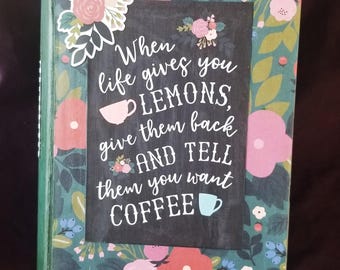 When
life gives you
LEMONS,
give them back
AND TELL
them you want
COFFEE